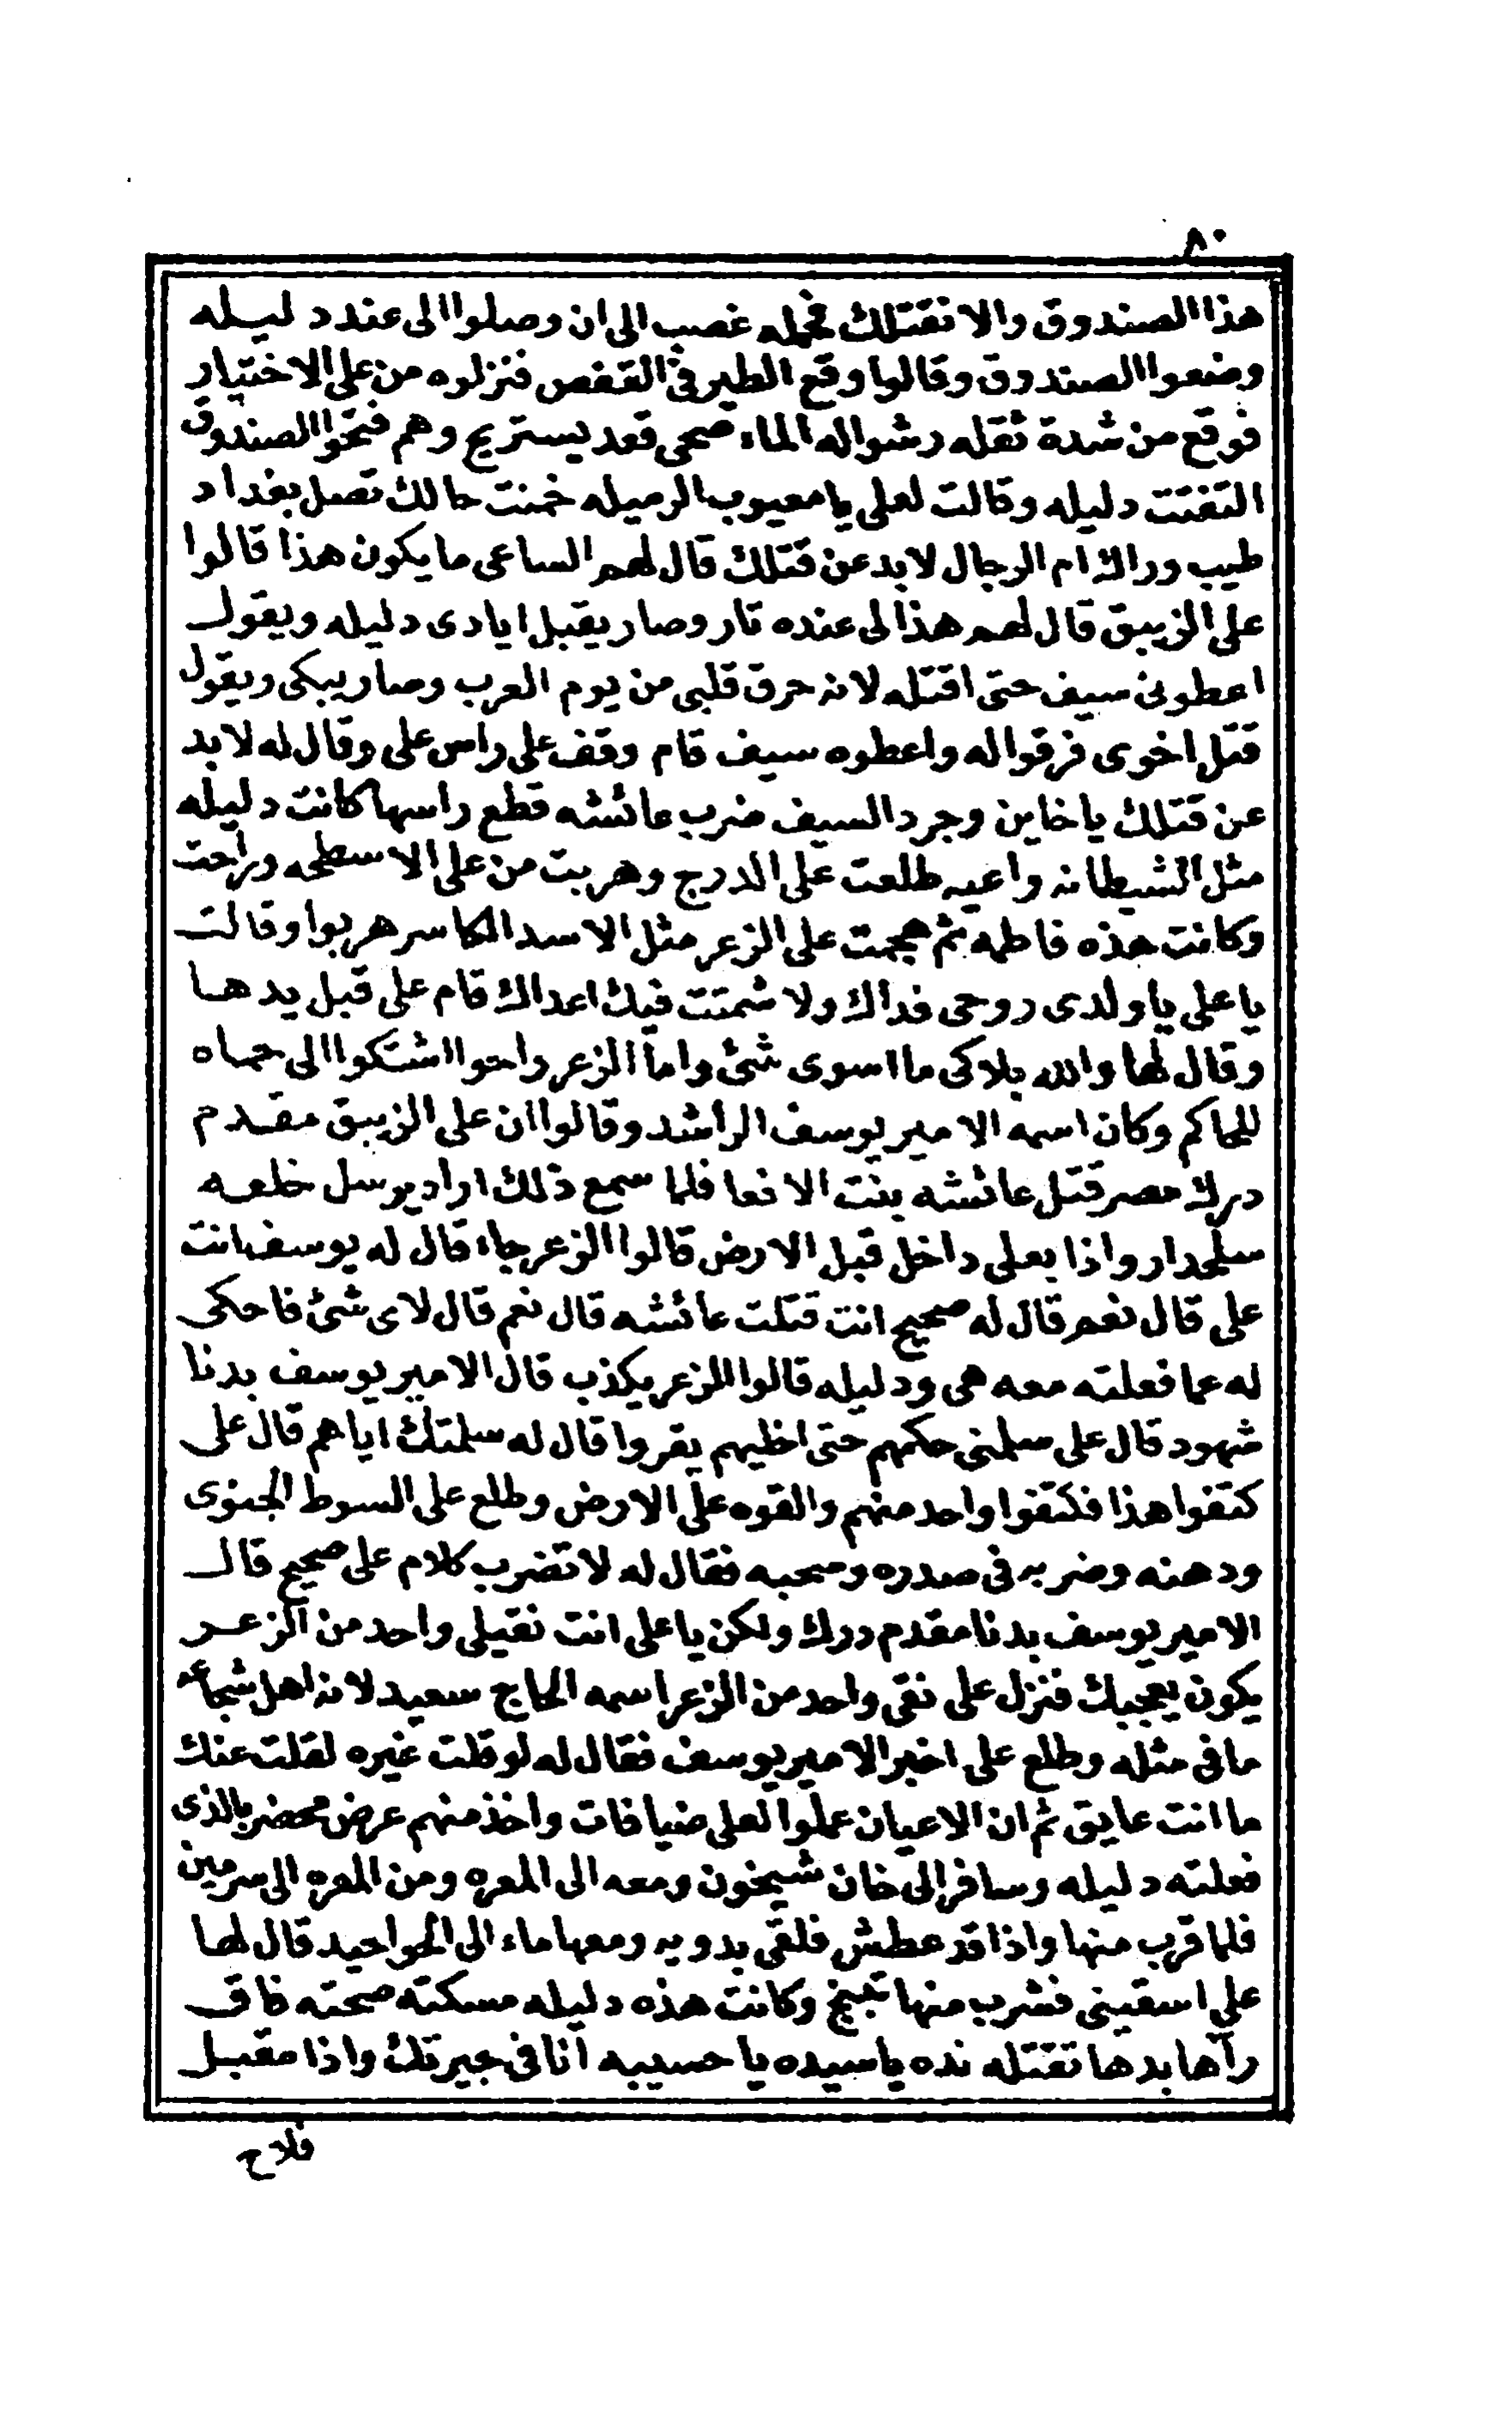 ٨٠
هذا الصندوق والا نقتلك فحمله غصب الى ان وصلوا الى عند دليله
وضعوا الصندوق وقالوا وقع الطير فى القفص فنزلوه من على الاختيار
فوقع من شدة ثقله رشوا له الماء صحى قعد يستريح وهم فتحوا الصندوق
التفتت دليله وقالت لعلى يا معيوب الرميله خمنت حالك تصل بغداد
طيب وراك ام الرجال لا بد عن قتلك قال لهم الساعى ما يكون هذا قالوا
على الزيبق قال لهم هذا لى عنده تار وصار يقبل ايادى دليله ويقول
اعطونى سيف حتى اقتله لانه حرق قلبى من يوم العرب وصار يبكى ويقول
قتل اخوى فرقوا له واعطوه سيف قام وقف على راس على وقال له لا بد
عن قتلك يا خاين وجرد السيف ضرب عائشه قطع راسها كانت دليله
مثل الشيطانه واعيه طلعت على الدرج وهربت من على الاسطحه وراحت
وكانت هذه فاطمه ثم هجمت على الزعر مثل الاسد الكاسر هربوا وقالت
يا على يا ولدى روحى فداك ولا شمتت فيك اعداك قام على قبل يدها
وقال لها والله بلاكى ما اسوى شئ واما الزعر راحوا اشتكوا الى حماه
للحاكم وكان اسمه الامير يوسف الراشد وقالوا ان على الزيبق مقدم
درك مصر قتل عائشه بنت الافعا فلما سمع ذلك اراد يرسل خلعه
سلحدار واذا بعلى داخل قبل الارض قالوا الزعر جاء قال له يوسف انت
على قال نعم قال له صحيح انت قتلت عائشه قال نعم قال لاى شئ فاحكى
له عما فعلته معه هى ودليله قالوا الزعر يكذب قال الامير يوسف بدنا
شهود قال على سلمنى حكمهم حتى اخليهم يقروا قال له سلمتك اياهم قال على
كتفوا هذا فكتفوا واحد منهم والقوه على الارض وطلع على السوط الجنوى
ودهنه وضربه فى صدره وسحبه فقال له لا تضرب كلام على صحيح قال
الامير يوسف بدنا مقدم درك ولكن يا على انت نقيلى واحد من الزعر
يكون يعجبك فنزل على نقى واحد من الزعر اسمه الحاج سعيد لانه اهل شجاعه
ما فى مثله وطلع على اخبر الامير يوسف فقال له لو قلت غيره لقلت عنك
ما انت عايق ثم ان الاعيان عملوا لعلى ضيافات واخذ منهم عرض محضر بالذى
فعلته دليله وسافر الى خان شيخون ومعه الى المعره ومن المعره الى سرمين
فلما قرب منها واذا قد عطش فلقى بدويه ومعها ماء الى الحواحيد قال لها
على اسقينى فشرب منها تبنج وكانت هذه دليله مسكته صحته فاق
رآها بدها تقتله نده يا سيده يا حسيبه انا فى جيرتك واذا مقبل
فلاح